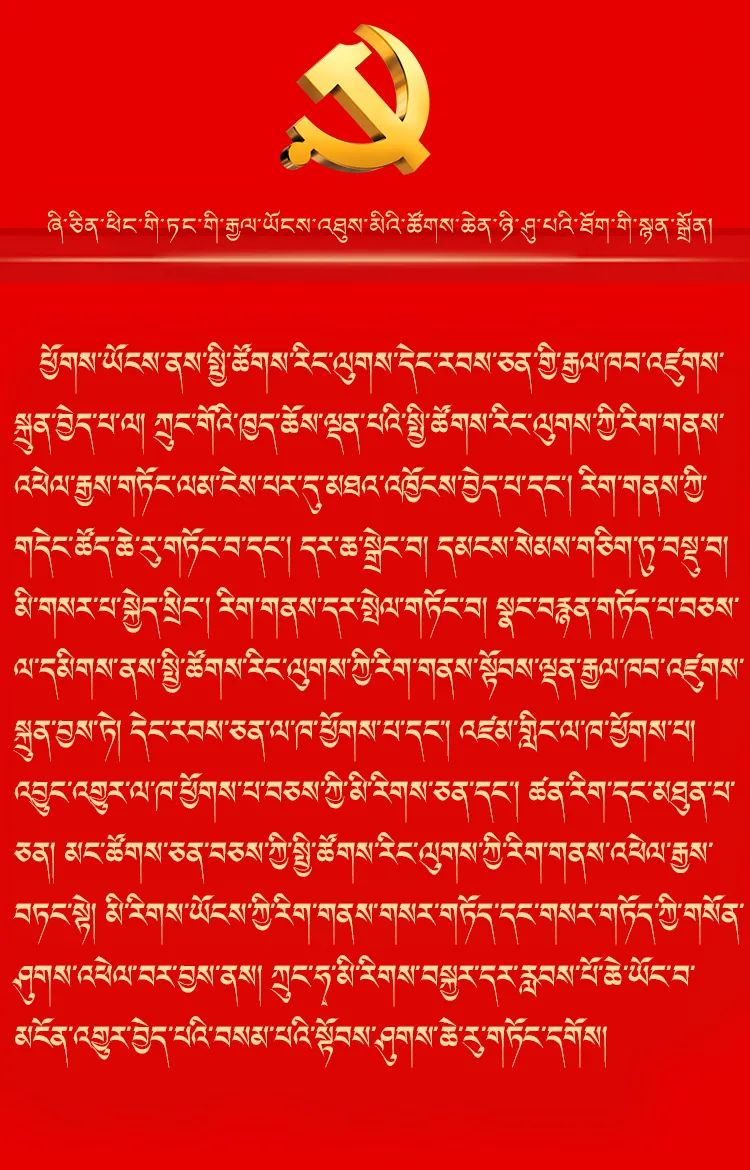 ཞི་ཅིན་ཕིང་གི་ཏང་གི་རྒྱལ་ཡོངས་འཐུས་མིའི་ཚོགས་ཆེན་ཉི་ཤུ་པའི་ཐོག་གི་སྙན་སྒྲོན།
ཕྱོགས་ཡོངས་ནས་སྤྱི་ཚོགས་རིང་ལུགས་དེང་རབས་ཅན་གྱི་རྒྱལ་ཁབ་འཛུགས་
སྐྲུན་བྱེད་པ་ལ། ཀྲུང་གོའི་ཁྱད་ཆོས་ལྡན་པའི་སྤྱི་ཚོགས་རིང་ལུགས་ཀྱི་རིག་གནས་
འཕེལ་རྒྱས་གཏོང་ལམ་ངེས་པར་དུ་མཐའ་འཁྱོངས་བྱེད་པ་དང་། རིག་གནས་ཀྱི་
གདེང་ཚོད་ཆེ་རུ་གཏོང་བ་དང་། དར་ཆ་སྒྲེང་བ། དམངས་སེམས་གཅིག་ཏུ་བསྡུ་བ།
མི་གསར་པ་སྐྱེད་སྲིང་། རིག་གནས་དར་སྤེལ་གཏོང་བ། སྣང་བརྙན་གཏོད་པ་བཅས་
ལ་དམིགས་ནས་སྤྱི་ཚོགས་རིང་ལུགས་ཀྱི་རིག་གནས་སྟོབས་ལྡན་རྒྱལ་ཁབ་འཛུགས་
སྐྲུན་བྱས་ཏེ། དེང་རབས་ཅན་ལ་ཁ་ཕྱོགས་པ་དང་། འཛམ་གླིང་ལ་ཁ་ཕྱོགས་པ།
འབྱུང་འགྱུར་ལ་ཁ་ཕྱོགས་པ་བཅས་ཀྱི་མི་རིགས་ཅན་དང་། ཚན་རིག་དང་མཐུན་པ་
ཅན། མང་ཚོགས་ཅན་བཅས་ཀྱི་སྤྱི་ཚོགས་རིང་ལུགས་ཀྱི་རིག་གནས་འཕེལ་རྒྱས་
བཏང་སྟེ། མི་རིགས་ཡོངས་ཀྱི་རིག་གནས་གསར་གཏོད་དང་གསར་གཏོད་ཀྱི་གསོན་
ཤུགས་འཕེལ་བར་བྱས་ནས། ཀྲུང་ཧྭ་མི་རིགས་བསྐྱར་དར་རླབས་པོ་ཆེ་ཡོང་བ་
མངོན་འགྱུར་བྱེད་པའི་བསམ་པའི་སྟོབས་ཤུགས་ཆེ་རུ་གཏོང་དགོས།